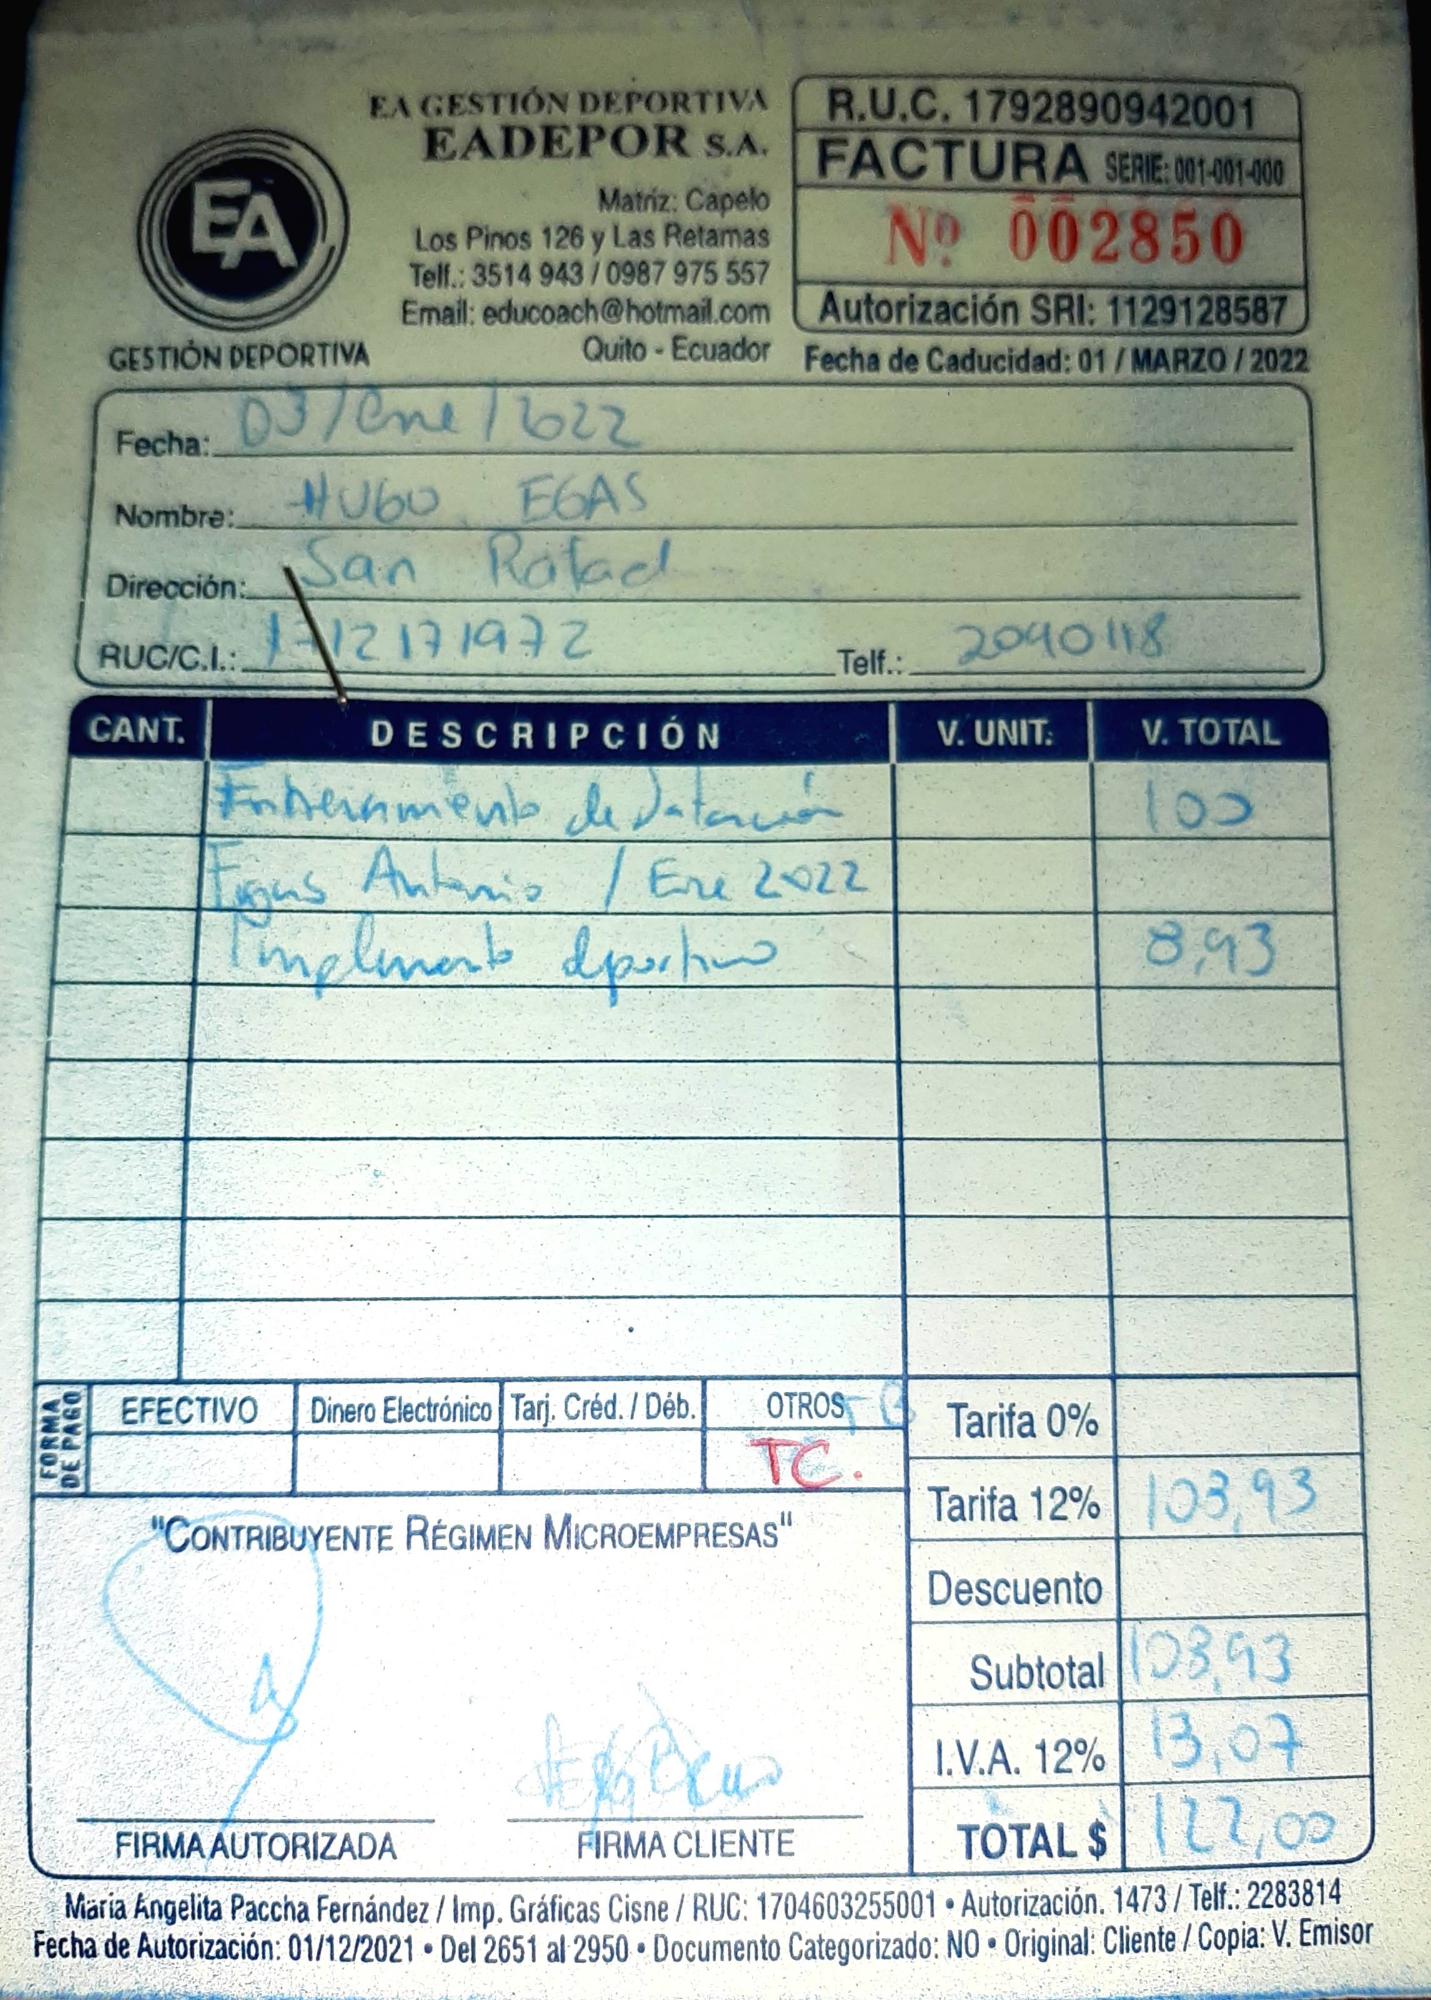 EA GESTIÓN DEPORTIVA
EADEPOR S.A.
EA
GESTIÓN DEPORTIVA
Matriz: Capelo
Los Pinos 126 y Las Retamas
Telf.: 3514 943 / 0987 975 557
Email: educoach@hotmail.com
Quito - Ecuador
R.U.C. 1792890942001
FACTURA SERIE: 001-001-000
Nº 002850
Autorización SRI: 1129128587
Fecha de Caducidad: 01 / MARZO / 2022
Fecha: 03/Ene/2022
Nombre: HUGO EGAS
Dirección: San Rafael
RUC/C.I.: 1712171972 Telf.: 2040118
CANT. DESCRIPCIÓN V. UNIT. V. TOTAL
Entrenamiento de Natación 100
Antonio / Ene 2022
Implemento deportivo 8,93
FORMA DE PAGO
EFECTIVO Dinero Electrónico Tarj. Créd. / Déb. OTROS
TC.
Tarifa 0%
Tarifa 12% 108,93
Descuento
Subtotal 108,93
I.V.A. 12% 13,07
TOTAL $ 122,00
"CONTRIBUYENTE RÉGIMEN MICROEMPRESAS"
FIRMA AUTORIZADA FIRMA CLIENTE
María Angelita Paccha Fernández / Imp. Gráficas Cisne / RUC: 1704603255001 • Autorización. 1473 / Telf.: 2283814
Fecha de Autorización: 01/12/2021 • Del 2651 al 2950 • Documento Categorizado: NO • Original: Cliente / Copia: V. Emisor